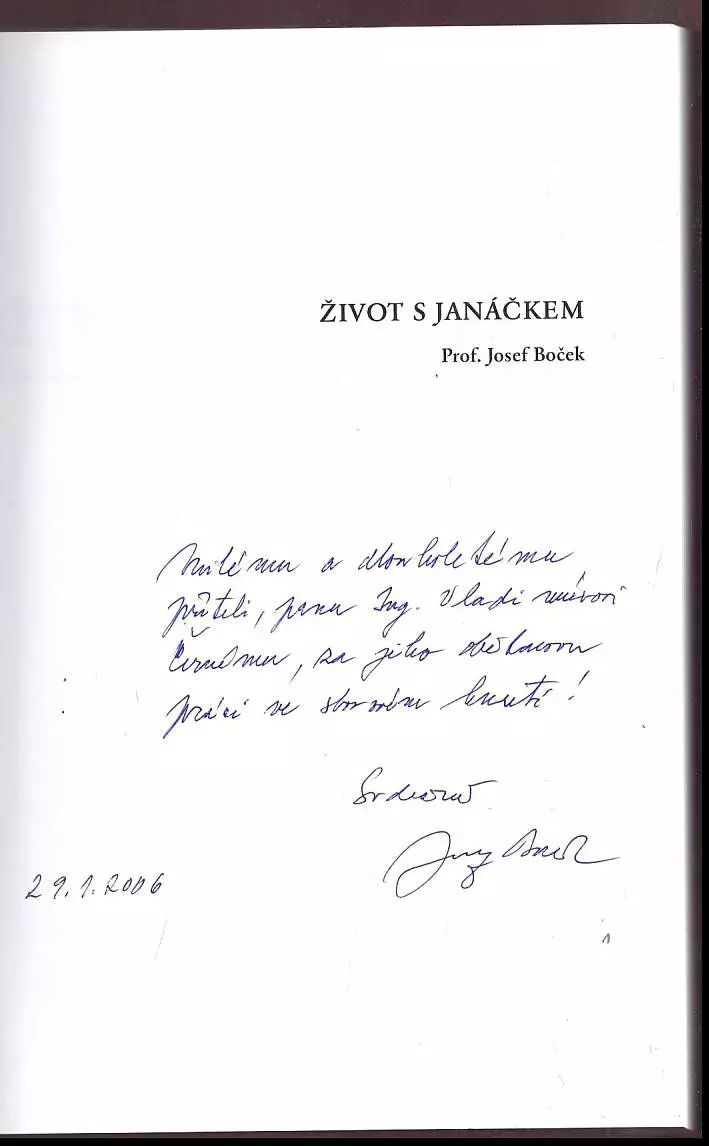 ŽIVOT S JANÁČKEM
Prof. Josef Boček
Milému a dlouholetému
příteli, panu Ing. Vladimírovi
Černému, za jeho obětavou
práci ve sborovém hnutí!
Srdečně
Boček
29.1.2006
1